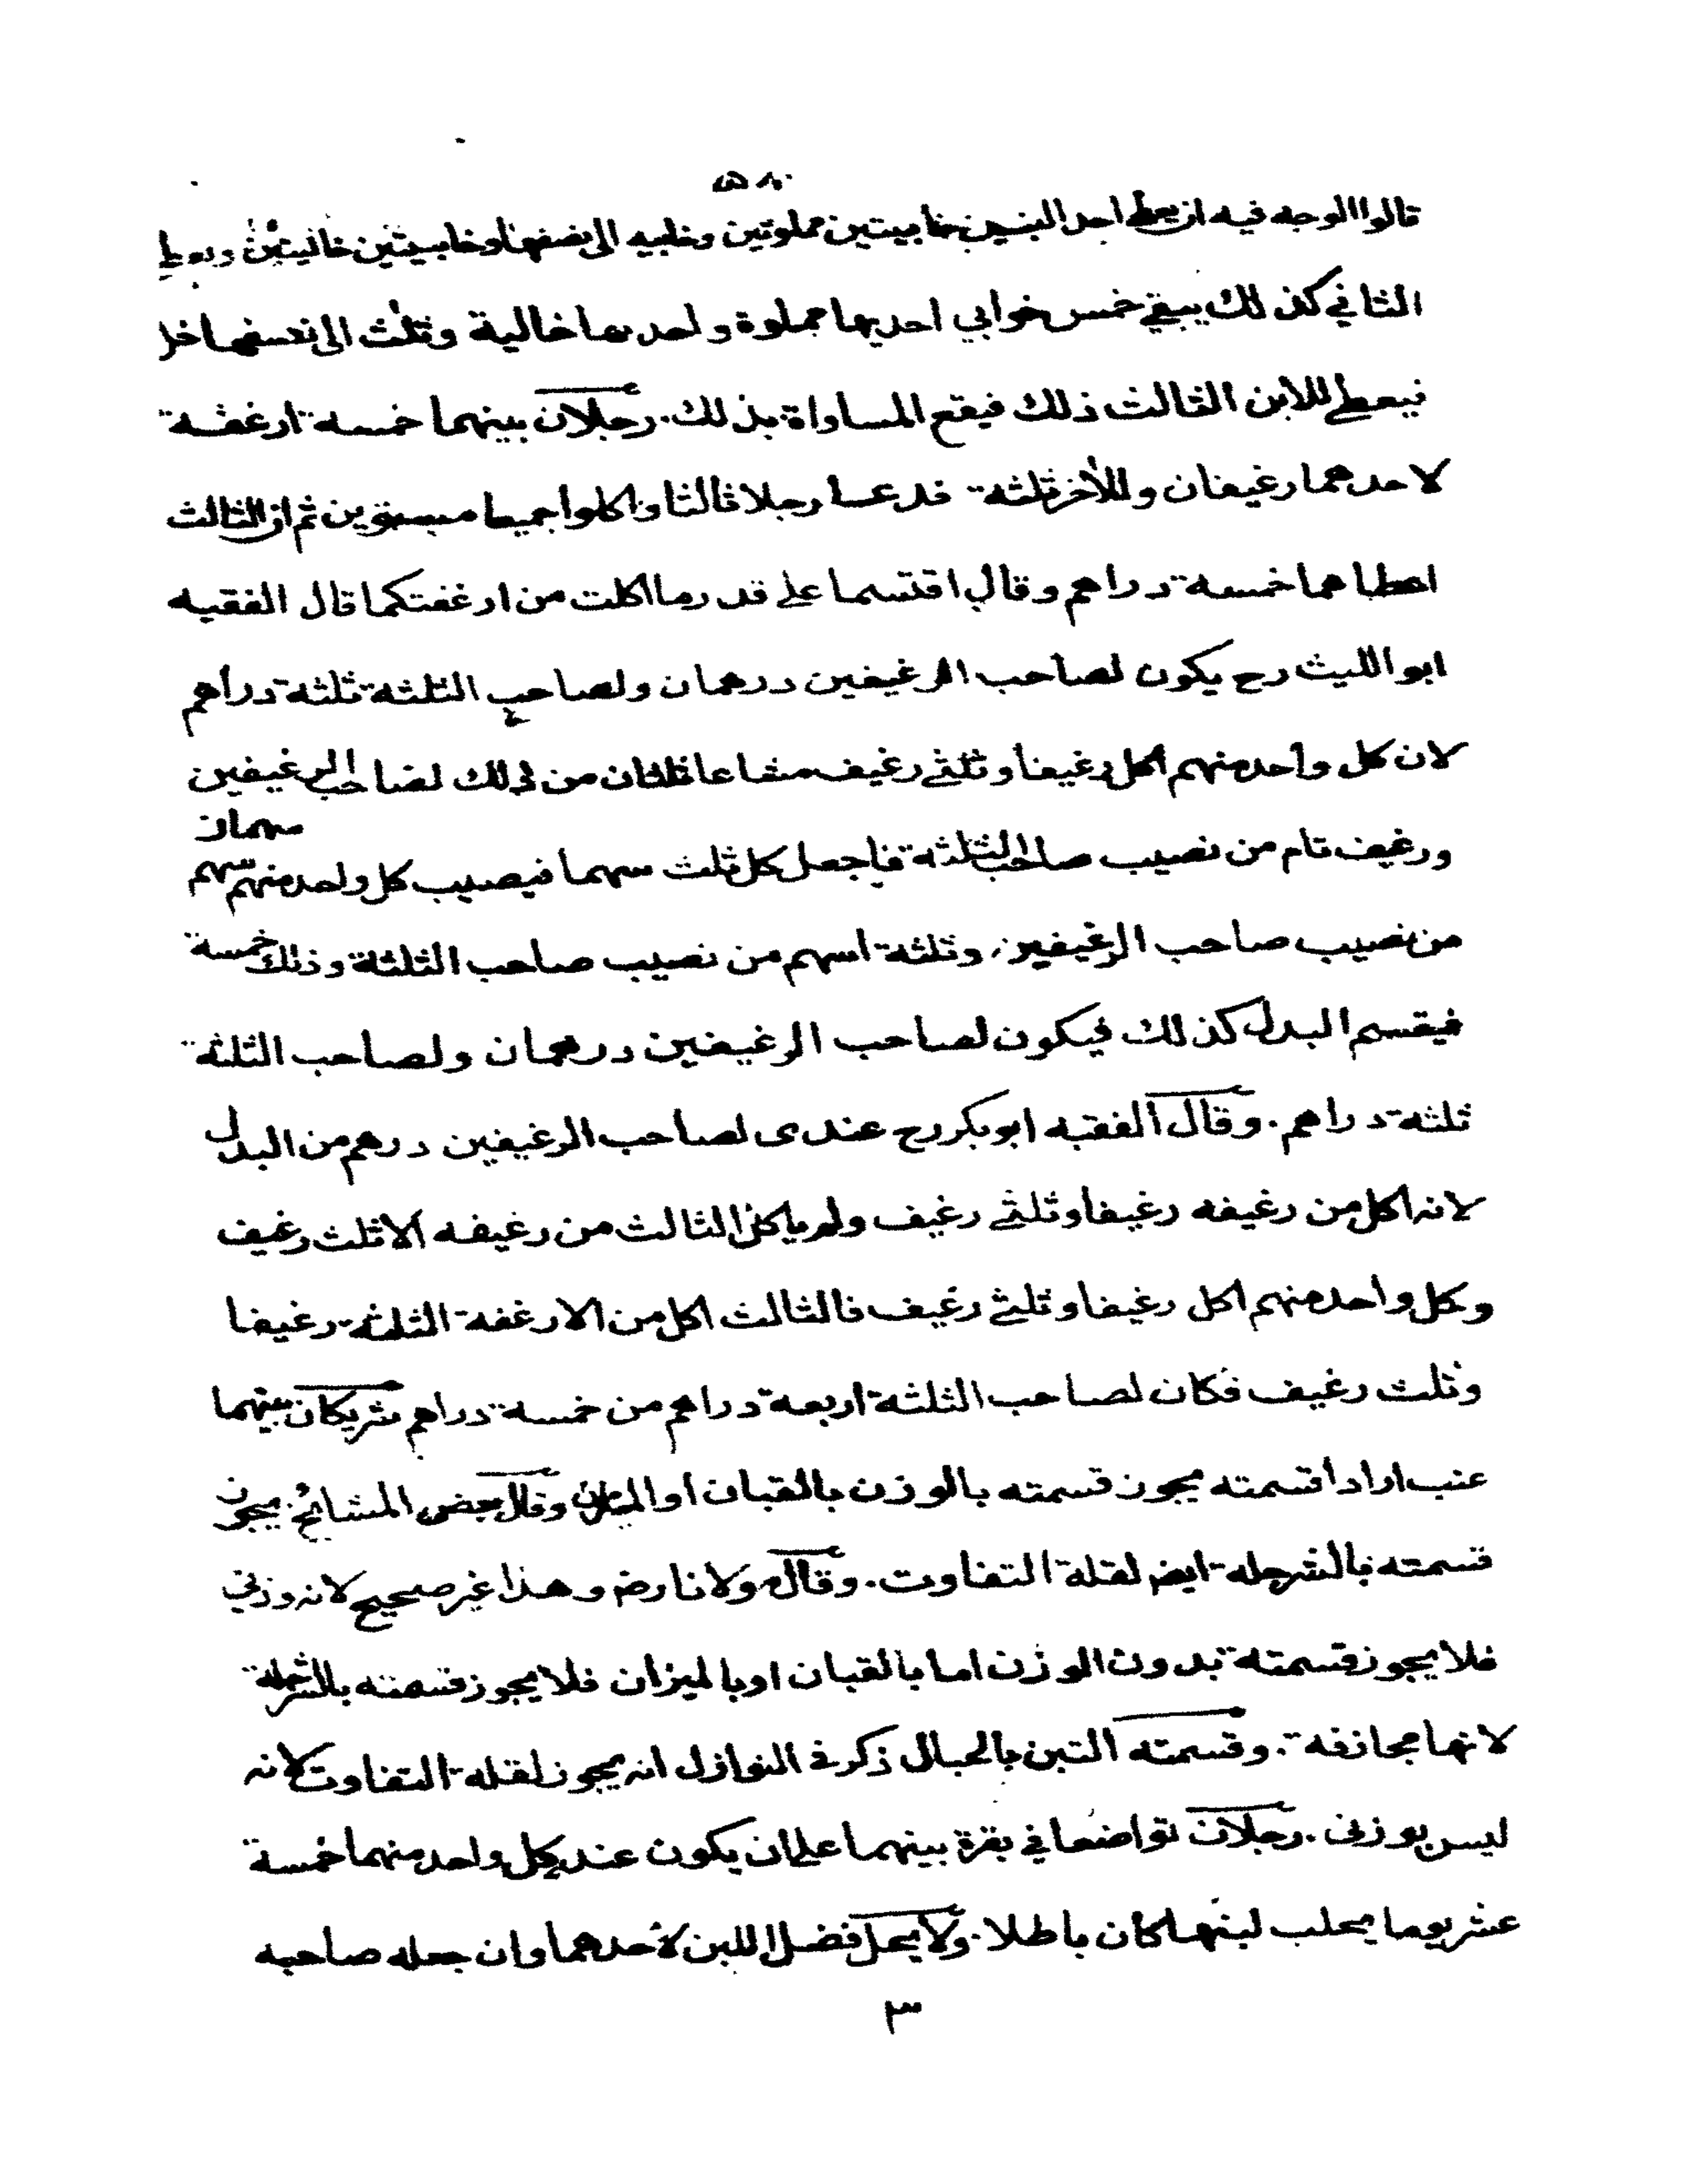 ٥٨٠
قالوا الوجه فيه ان يعطى احد البنين خابيتين مملوتين وخابيه الى نصفها وخابيتين خاليتين ويعطى
الثاني كذلك يبقى خمس خوابي احديها مملوة واحديها خالية وثلث الى نصفها خل
فيعطى للابن الثالث ذلك فيقع المساواة بذلك. رجلان بينهما خمسة ارغفة
لاحدهما رغيفان وللأخر ثلثة فدعا رجلا ثالثا واكلوا جميعا مستوين ثم ان الثالث
اعطاهما خمسة دراهم وقال اقتسما على قدر ما اكلت من ارغفتكما قال الفقيه
ابو الليث رح يكون لصاحب الرغيفين درهمان ولصاحب الثلثة ثلثة دراهم
لان كل واحد منهم اكل رغيفا وثلثى رغيف مشاعا ثلثان من ذلك لصاحب الرغيفين
ورغيف تام من نصيب صاحب الثلثة فاجعل كل ثلث سهما فيصيب كل واحد منهم سهمان
من نصيب صاحب الرغيفين وثلثة اسهم من نصيب صاحب الثلثة وذلك خمسة
فيقسم البدل كذلك فيكون لصاحب الرغيفين درهمان ولصاحب الثلثة
ثلثة دراهم. وقال الفقيه ابو بكر رح عندى لصاحب الرغيفين درهم من البدل
لانه اكل من رغيفه رغيفا وثلثى رغيف ولم ياكل الثالث من رغيفه الا ثلث رغيف
وكل واحد منهم اكل رغيفا وثلثى رغيف فالثالث اكل من الارغفة الثلثة رغيفا
وثلث رغيف فكان لصاحب الثلثة اربعة دراهم من خمسة دراهم شريكان بينهما
عنب ارادا قسمته يجوز قسمته بالوزن بالقبان او الميزان وقال بعض المشائخ يجوز
قسمته بالشرجله ايض لقلة التفاوت. وقال مولانا رض وهذا غير صحيح لانه وزنى
فلا يجوز قسمته بدون الوزن اما بالقبان او بالميزان فلا يجوز قسمته بالشرجلة
لانها مجازفة. وقسمته التبن بالحبال ذكر فى النوازل انه يجوز لقلة التفاوت لانه
ليس بوزنى. رجلان تواضعا في بقرة بينهما على ان يكون عند كل واحد منهما خمسة
عشر يوما يحلب لبنها كان باطلا. ولا يحل فضل اللبن لأحدهما وان جعله صاحبه
٣